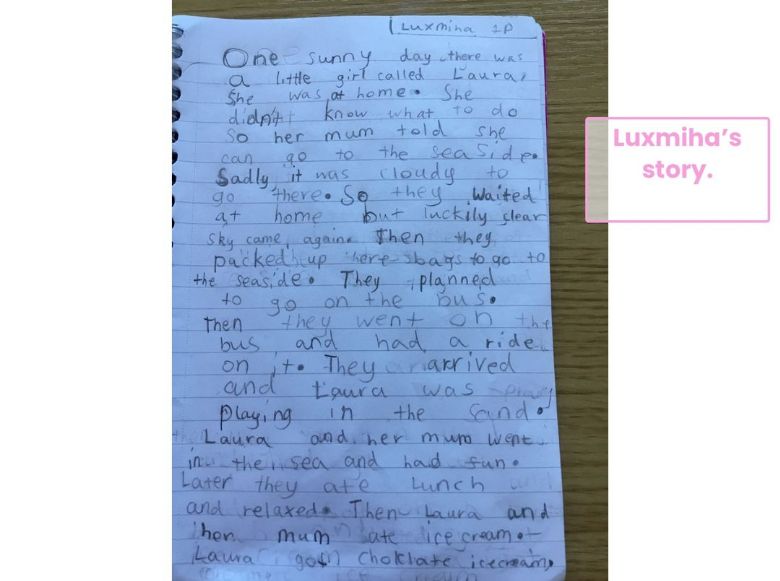 Luxmina 1P
One sunny day there was
a little girl called Laura,
She was at home. She
didn't know what to do
So her mum told she
can go to the seaside.
Sadly it was cloudy to
go there. So they waited
at home but luckily clear
sky came again. Then they
packed up here bags to go to
the seaside. They planned
to go on the bus.
Then they went on the
bus and had a ride
on it. They arrived
and Laura was
playing in the sand.
Laura and her mum went
in the sea and had fun.
Later they ate lunch
and relaxed. Then Laura and
her mum ate ice cream.
Laura got choklate icecream,
Luxmiha's
story.